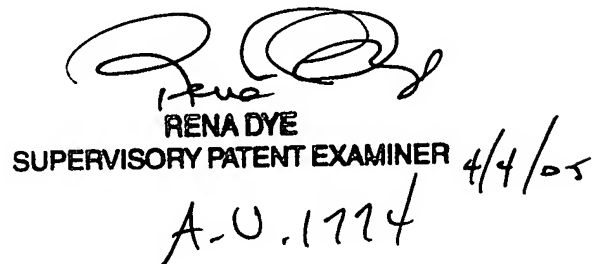 Rena Dye
RENA DYE
SUPERVISORY PATENT EXAMINER 4/4/05
A.U. 1774